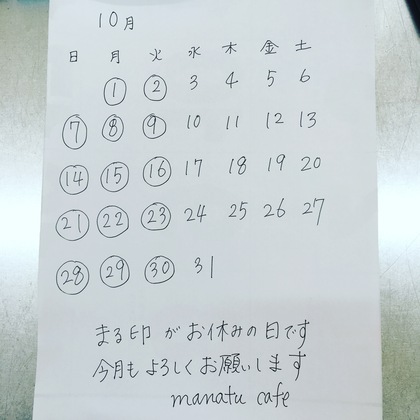 10月
日 月 火 水 木 金 土
① ② 3 4 5 6
⑦ ⑧ ⑨ 10 11 12 13
⑭ ⑮ ⑯ 17 18 19 20
㉑ ㉒ ㉓ 24 25 26 27
㉘ ㉙ ㉚ 31
まる印がお休みの日です
今月もよろしくお願いします
manatu cafe